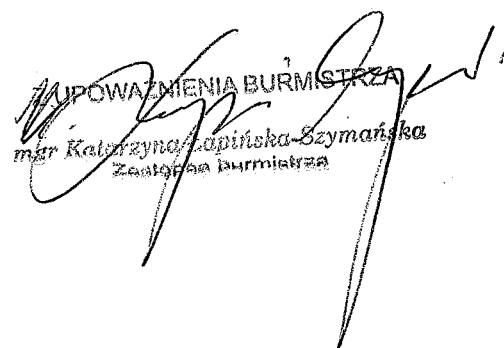 Z UPOWAŻNIENIA BURMISTRZA
mgr Katarzyna Łapińska-Szymańska
Zastępca Burmistrza